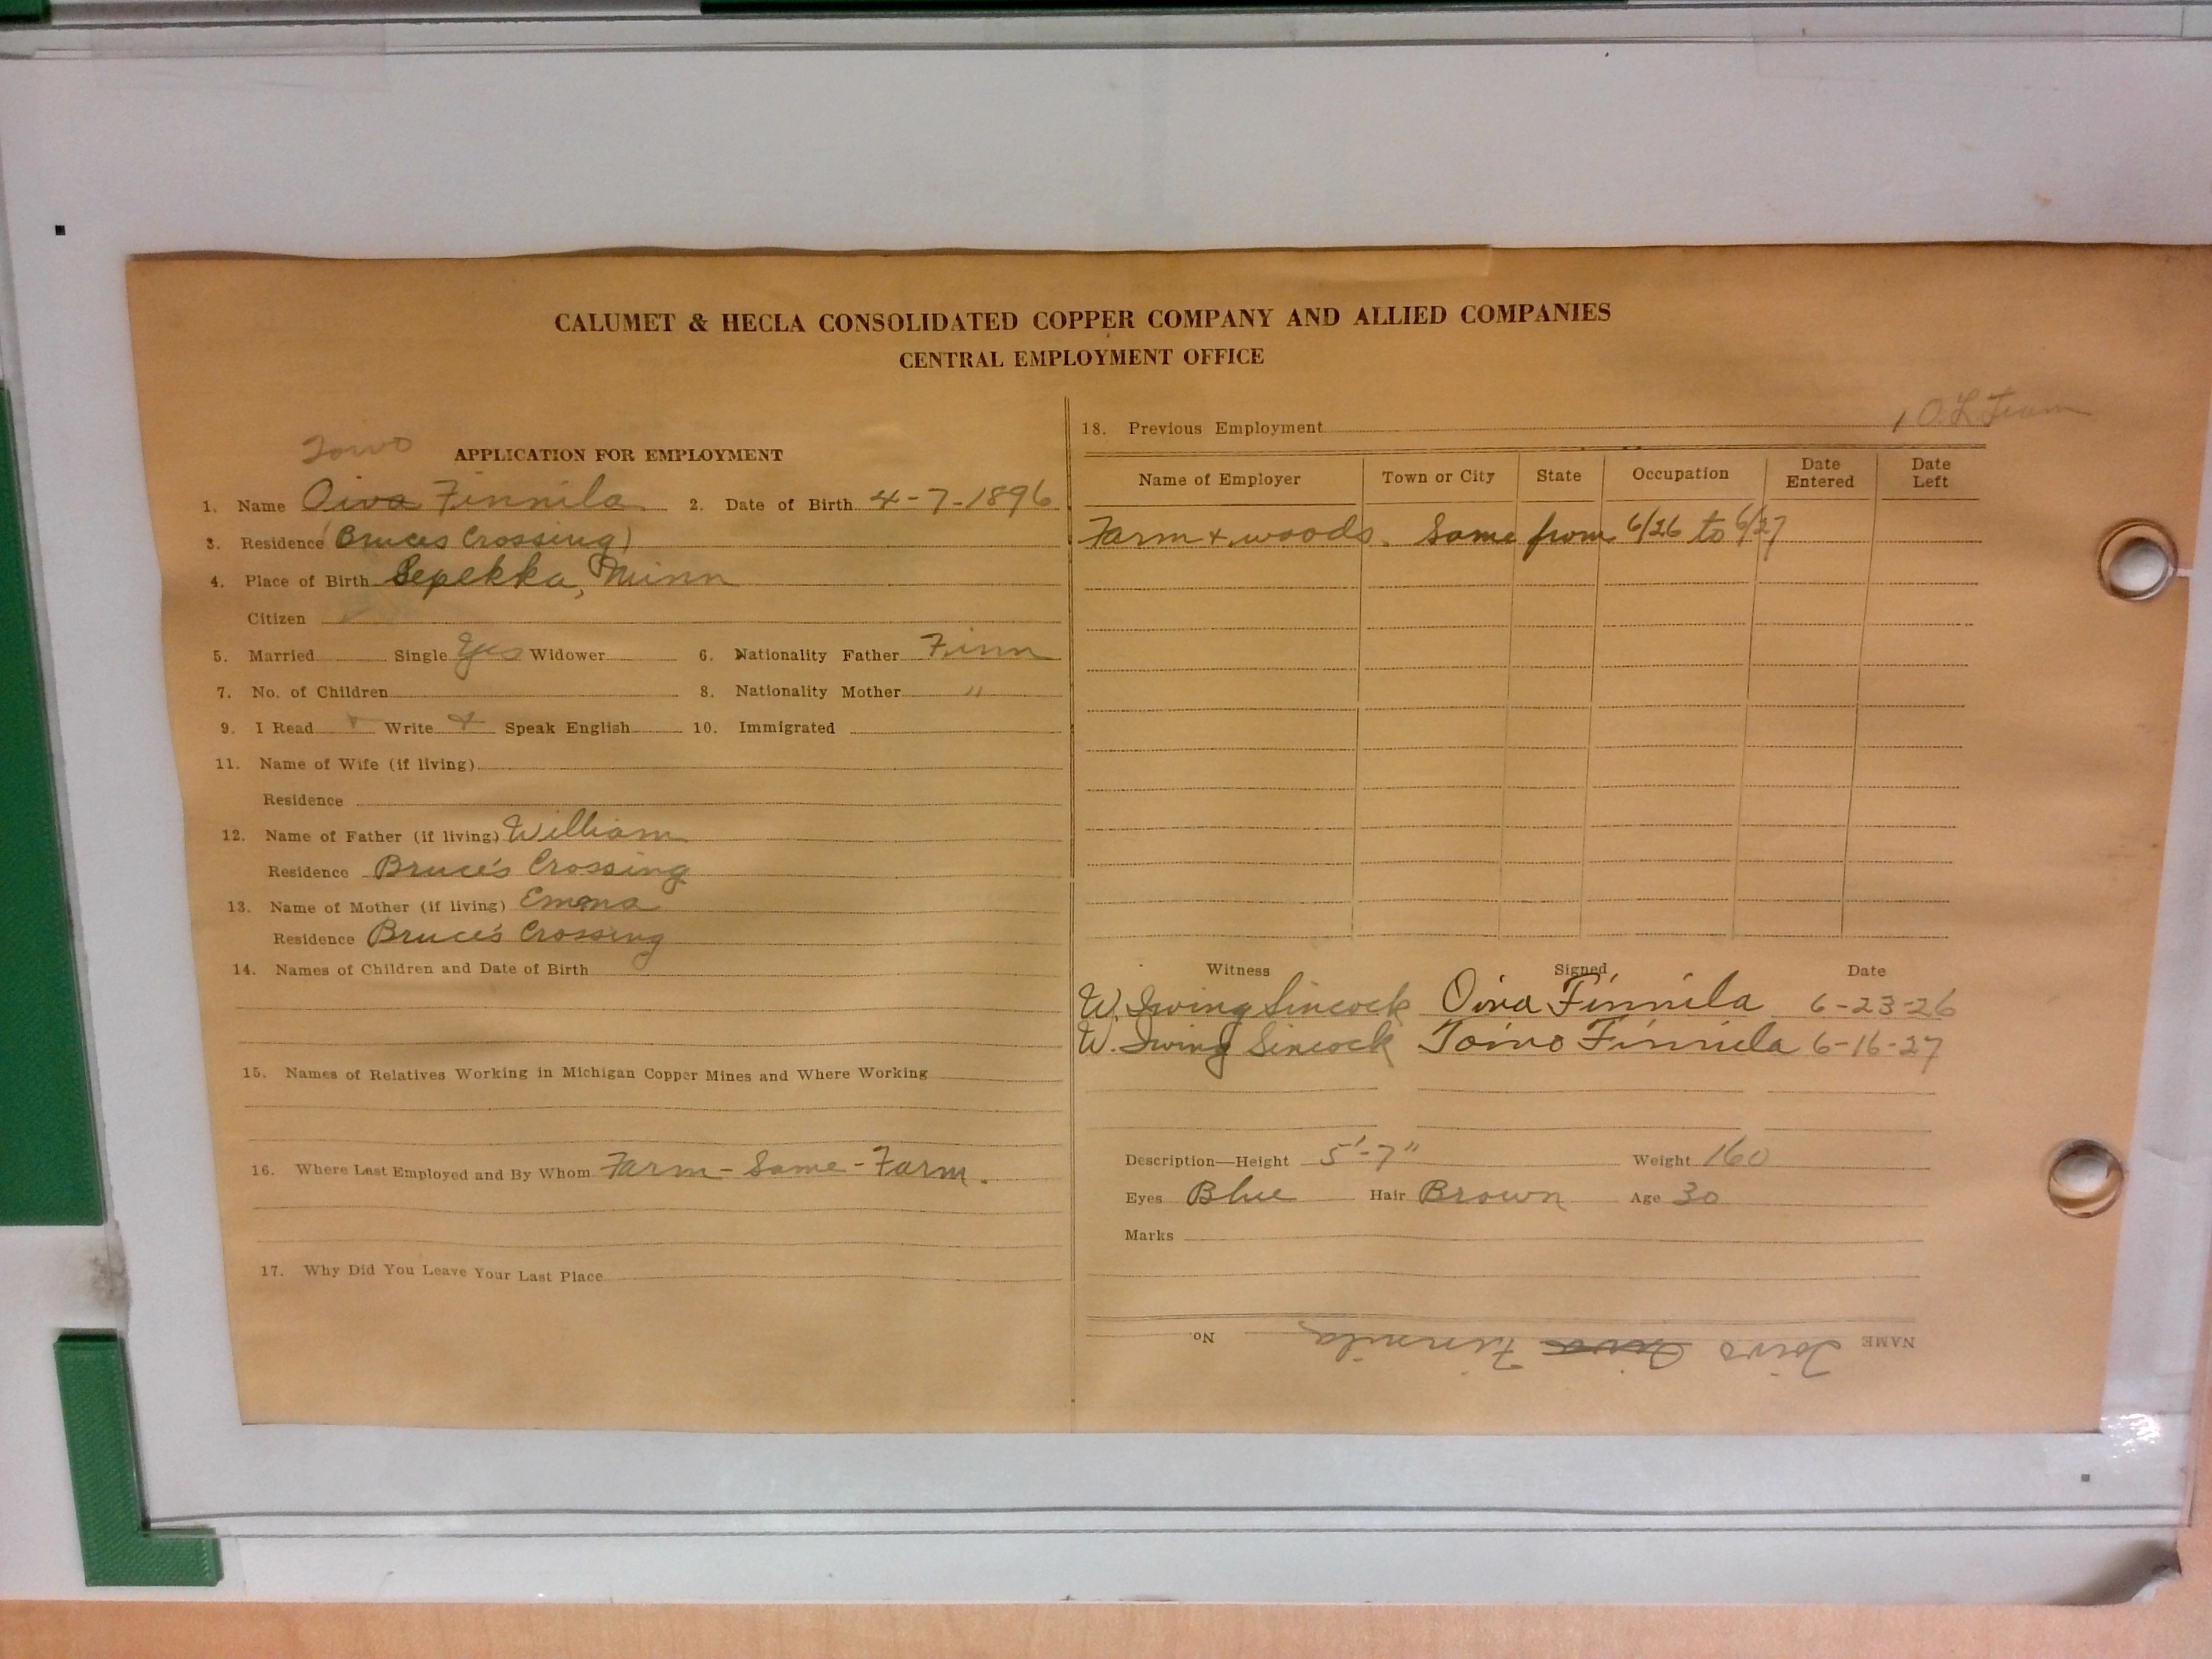 CALUMET & HECLA CONSOLIDATED COPPER COMPANY AND ALLIED COMPANIES
CENTRAL EMPLOYMENT OFFICE
Toivo
APPLICATION FOR EMPLOYMENT
1. Name Oiva Finnila 2. Date of Birth 4-7-1896
3. Residence (Bruces Crossing)
4. Place of Birth Sepekka, Minn
Citizen
5. Married Single Yes Widower 6. Nationality Father Finn
7. No. of Children 8. Nationality Mother "
9. I Read Write Speak English 10. Immigrated
11. Name of Wife (if living)
Residence
12. Name of Father (if living) William
Residence Bruce's Crossing
13. Name of Mother (if living) Emma
Residence Bruce's Crossing
14. Names of Children and Date of Birth
15. Names of Relatives Working in Michigan Copper Mines and Where Working
16. Where Last Employed and By Whom Farm - Same - Farm.
17. Why Did You Leave Your Last Place
18. Previous Employment O.L. Team
Name of Employer Town or City State Occupation Date Entered Date Left
Farm + woods. Same from 6/26 to 6/27
Witness Signed Date
W. Irving Sincock Oiva Finnila 6-23-26
W. Irving Sincock Toivo Finnila 6-16-27
Description—Height 5'-7" Weight 160
Eyes Blue Hair Brown Age 30
Marks
NAME Toivo Oiva Finnila No.